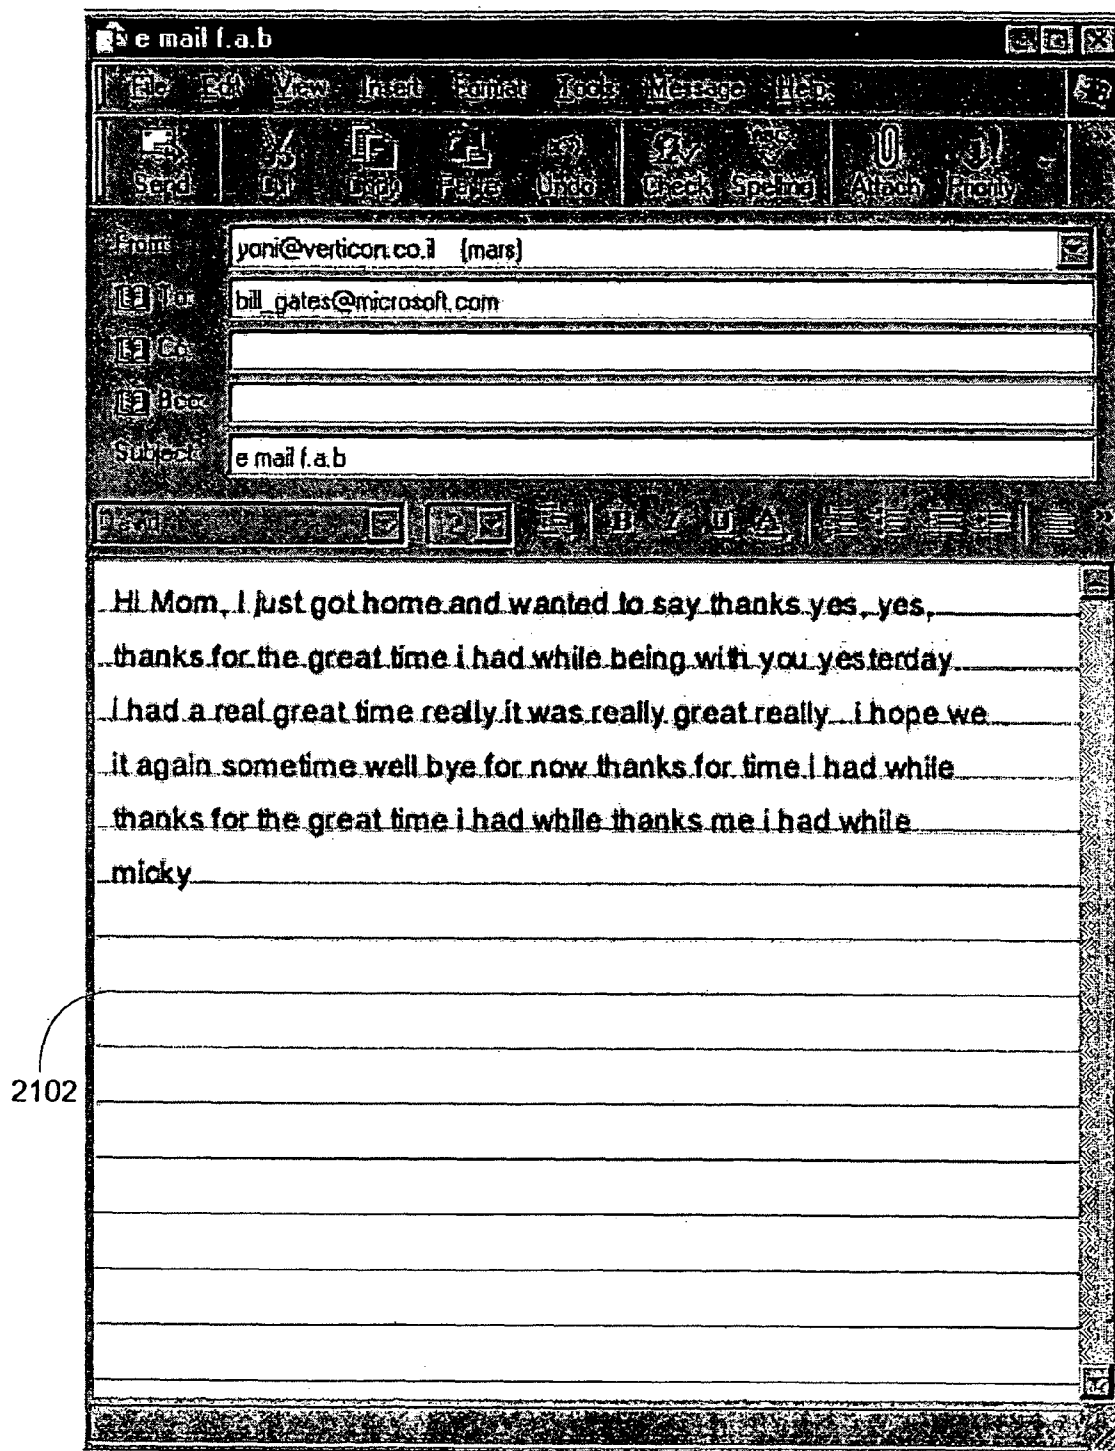 e mail f.a.b
File Edit View Insert Format Tools Message Help
Send Cut Copy Paste Undo Check Spelling Attach Priority
From: yoni@verticon.co.il (mars)
To: bill_gates@microsoft.com
Cc:
Bcc:
Subject: e mail f.a.b
12 B I U A
Hi Mom, I just got home and wanted to say thanks yes, yes,
thanks for the great time i had while being with you yesterday
i had a real great time really it was really great really i hope we
it again sometime well bye for now thanks for time i had while
thanks for the great time i had while thanks me i had while
micky
2102